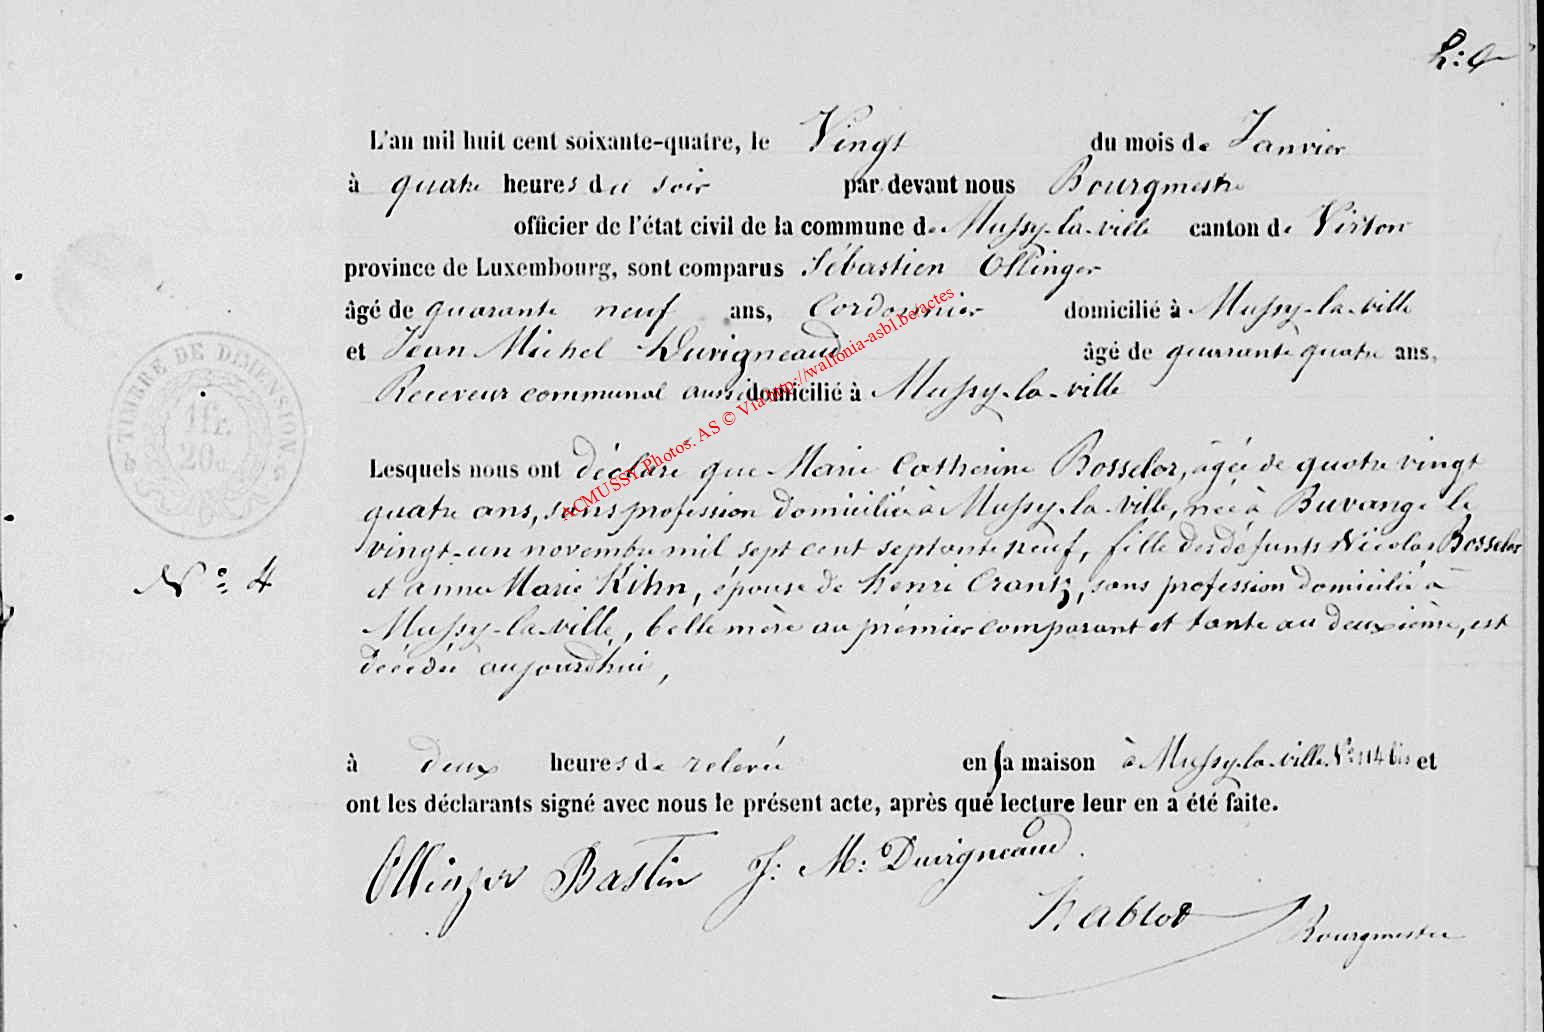 L'an mil huit cent soixante-quatre, le Vingt du mois de Janvier
à quatre heures du soir par devant nous Bourgmestre
officier de l'état civil de la commune de Mussy-la-ville canton de Virton
province de Luxembourg, sont comparus Sébastien Ollinger
âgé de quarante neuf ans, Cordonnier domicilié à Mussy-la-ville
et Jean Michel Duvigneaud âgé de quarante quatre ans,
Receveur communal aussi domicilié à Mussy-la-ville
ACMUSSY Photos. AS © Via http://wallonia-asbl.be/actes
TIMBRE DE DIMENSION
1 fr.
20
Lesquels nous ont déclaré que Marie Catherine Bosseler, âgée de quatre vingt
quatre ans, sans profession domiciliée à Mussy-la-ville, née à Buvange le
vingt-un novembre mil sept cent septante neuf, fille des défunts Nicolas Bosseler
N° 4
et anne Marie Kihn, épouse de henri Crantz, sans profession domicilié à
Mussy-la-ville, belle mère au prémier comparant et tante au deuxième, est
décédée aujourdhui,
à deux heures de relevée en sa maison à Mussy-la-ville N° 114 bis et
ont les déclarants signé avec nous le présent acte, après que lecture leur en a été faite.
Ollinger Bastin J: M: Duvigneaud.
hablot Bourgmestre